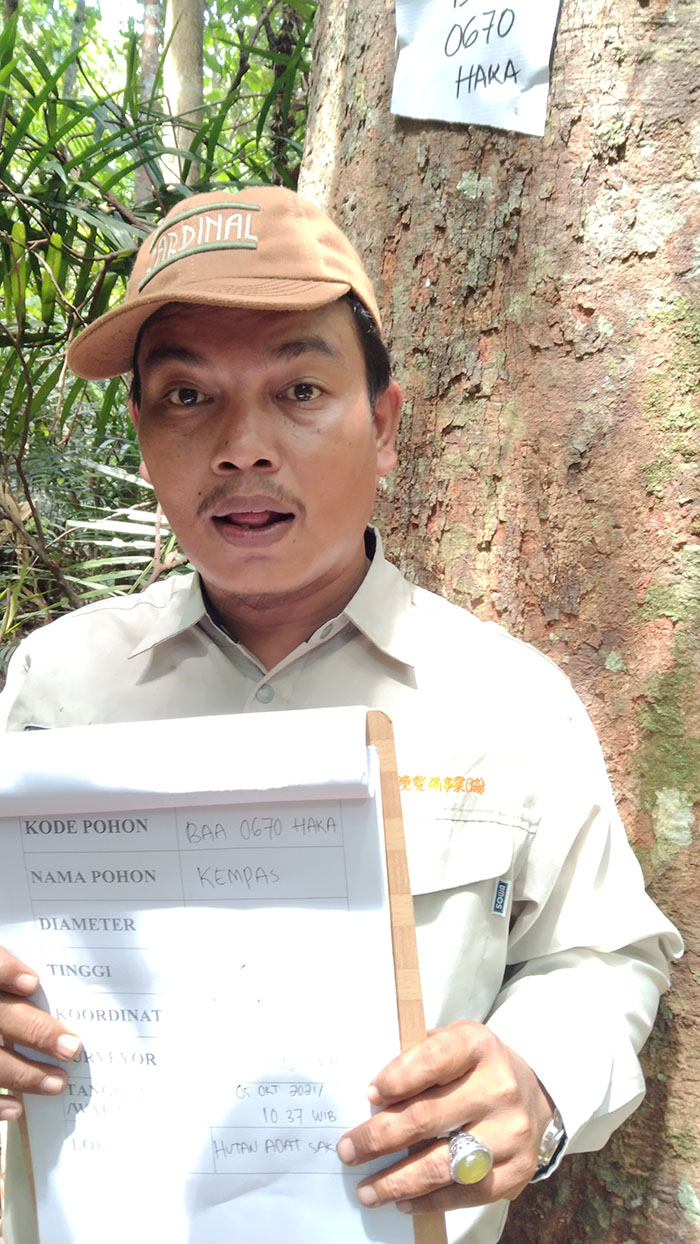 0670
HAKA
CARDINAL
KODE POHON BAA 0670 HAKA
NAMA POHON KEMPAS
DIAMETER
TINGGI
KOORDINAT
SURVEYOR
05 OKT 2021/
10 37 WIB
HUTAN ADAT